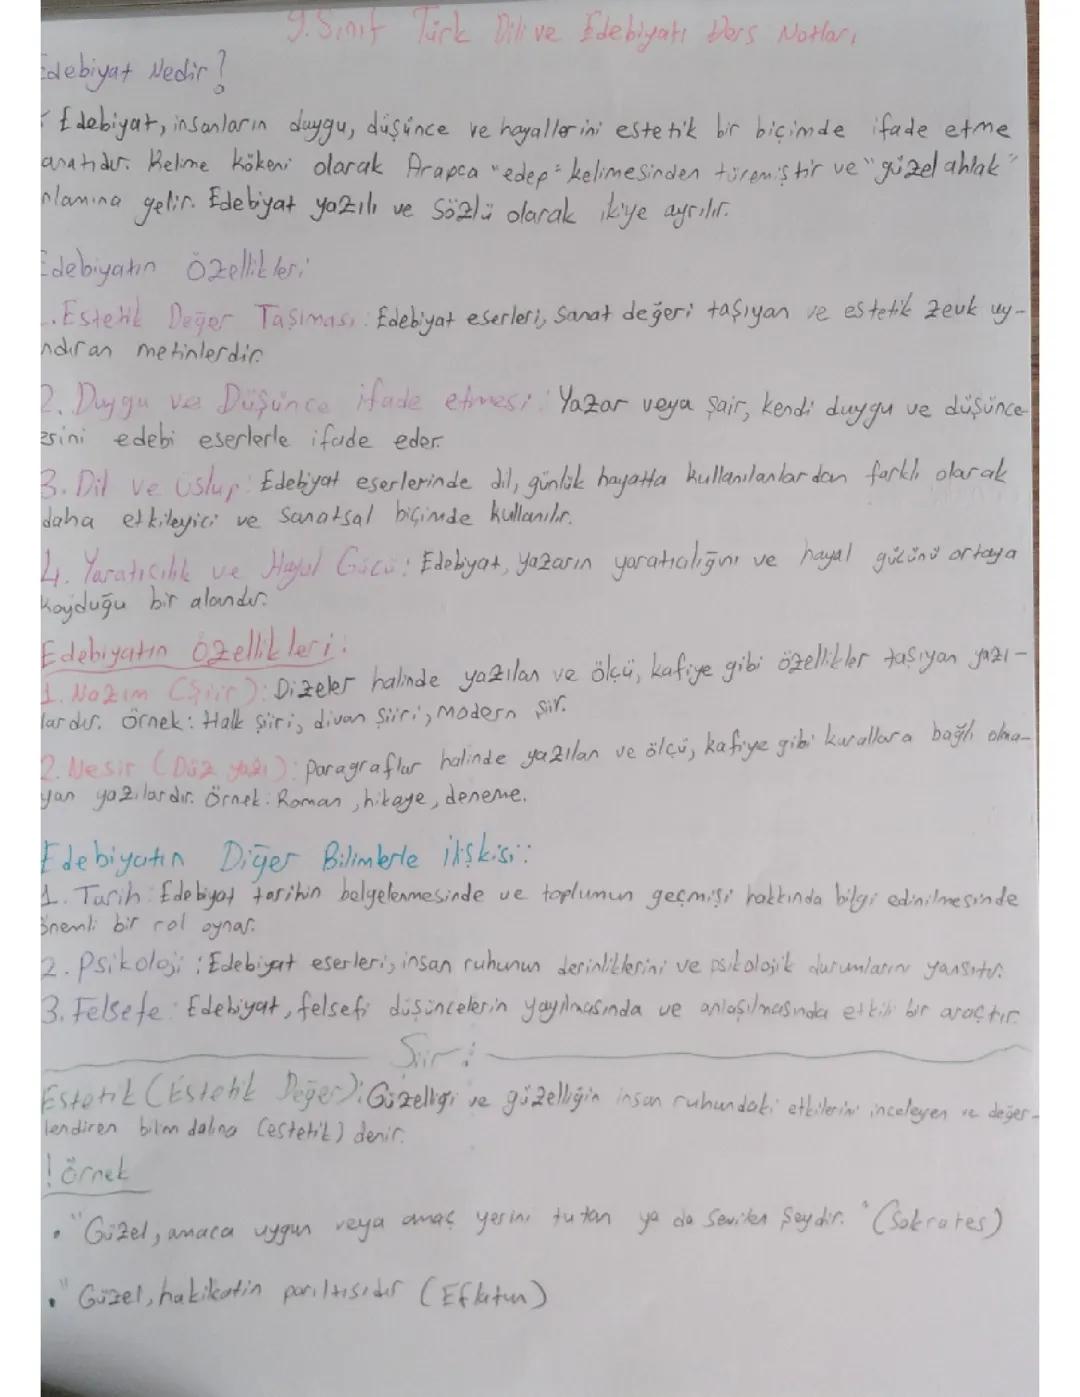 9. Sınıf Türk Dili ve Edebiyatı Ders Notları
Edebiyat Nedir?
Edebiyat, insanların duygu, düşünce ve hayallerini estetik bir biçimde ifade etme
anatıdır. Kelime kökeni olarak Arapça "edep" kelimesinden türemiştir ve "güzel ahlak"
nlamına gelir. Edebiyat yazılı ve sözlü olarak ikiye ayrılır.
Edebiyatın Özellikleri
1. Estetik Değer Taşıması: Edebiyat eserleri, sanat değeri taşıyan ve estetik zevk uy-
ndıran metinlerdir.
2. Duygu ve Düşünce ifade etmesi: Yazar veya şair, kendi duygu ve düşünce-
esini edebi eserlerle ifade eder.
3. Dil ve üslup: Edebiyat eserlerinde dil, günlük hayatta kullanılanlardan farklı olarak
daha etkileyici ve sanatsal biçimde kullanılır.
4. Yaratıcılık ve Hayal Gücü: Edebiyat, yazarın yaratıcılığını ve hayal gücünü ortaya
koyduğu bir alandır.
Edebiyatın özellikleri:
1. Nazım (Şiir): Dizeler halinde yazılan ve ölçü, kafiye gibi özellikler taşıyan yazı-
lardır. Örnek: Halk şiiri, divan şiiri, modern şiir.
2. Nesir (Düz yazı): paragraflar halinde yazılan ve ölçü, kafiye gibi kurallara bağlı olma-
yan yazılardır. Örnek: Roman, hikaye, deneme.
Edebiyatın Diğer Bilimlerle ilişkisi:
1. Tarih: Edebiyat tarihin belgelenmesinde ve toplumun geçmişi hakkında bilgi edinilmesinde
önemli bir rol oynar.
2. Psikoloji: Edebiyat eserleri, insan ruhunun derinliklerini ve psikolojik durumlarını yansıtır.
3. Felsefe: Edebiyat, felsefi düşüncelerin yayılmasında ve anlaşılmasında etkili bir araçtır.
Şiir:
Estetik (Estetik Değer): Güzelliği ve güzelliğin insan ruhundaki etkilerini inceleyen ve değer-
lendiren bilim dalına (estetik) denir.
! Örnek
• "Güzel, amaca uygun veya amaç yerini tutan ya da sevilen şeydir." (Sokrates)
• "Güzel, hakikatin parıltısıdır (Eflatun)